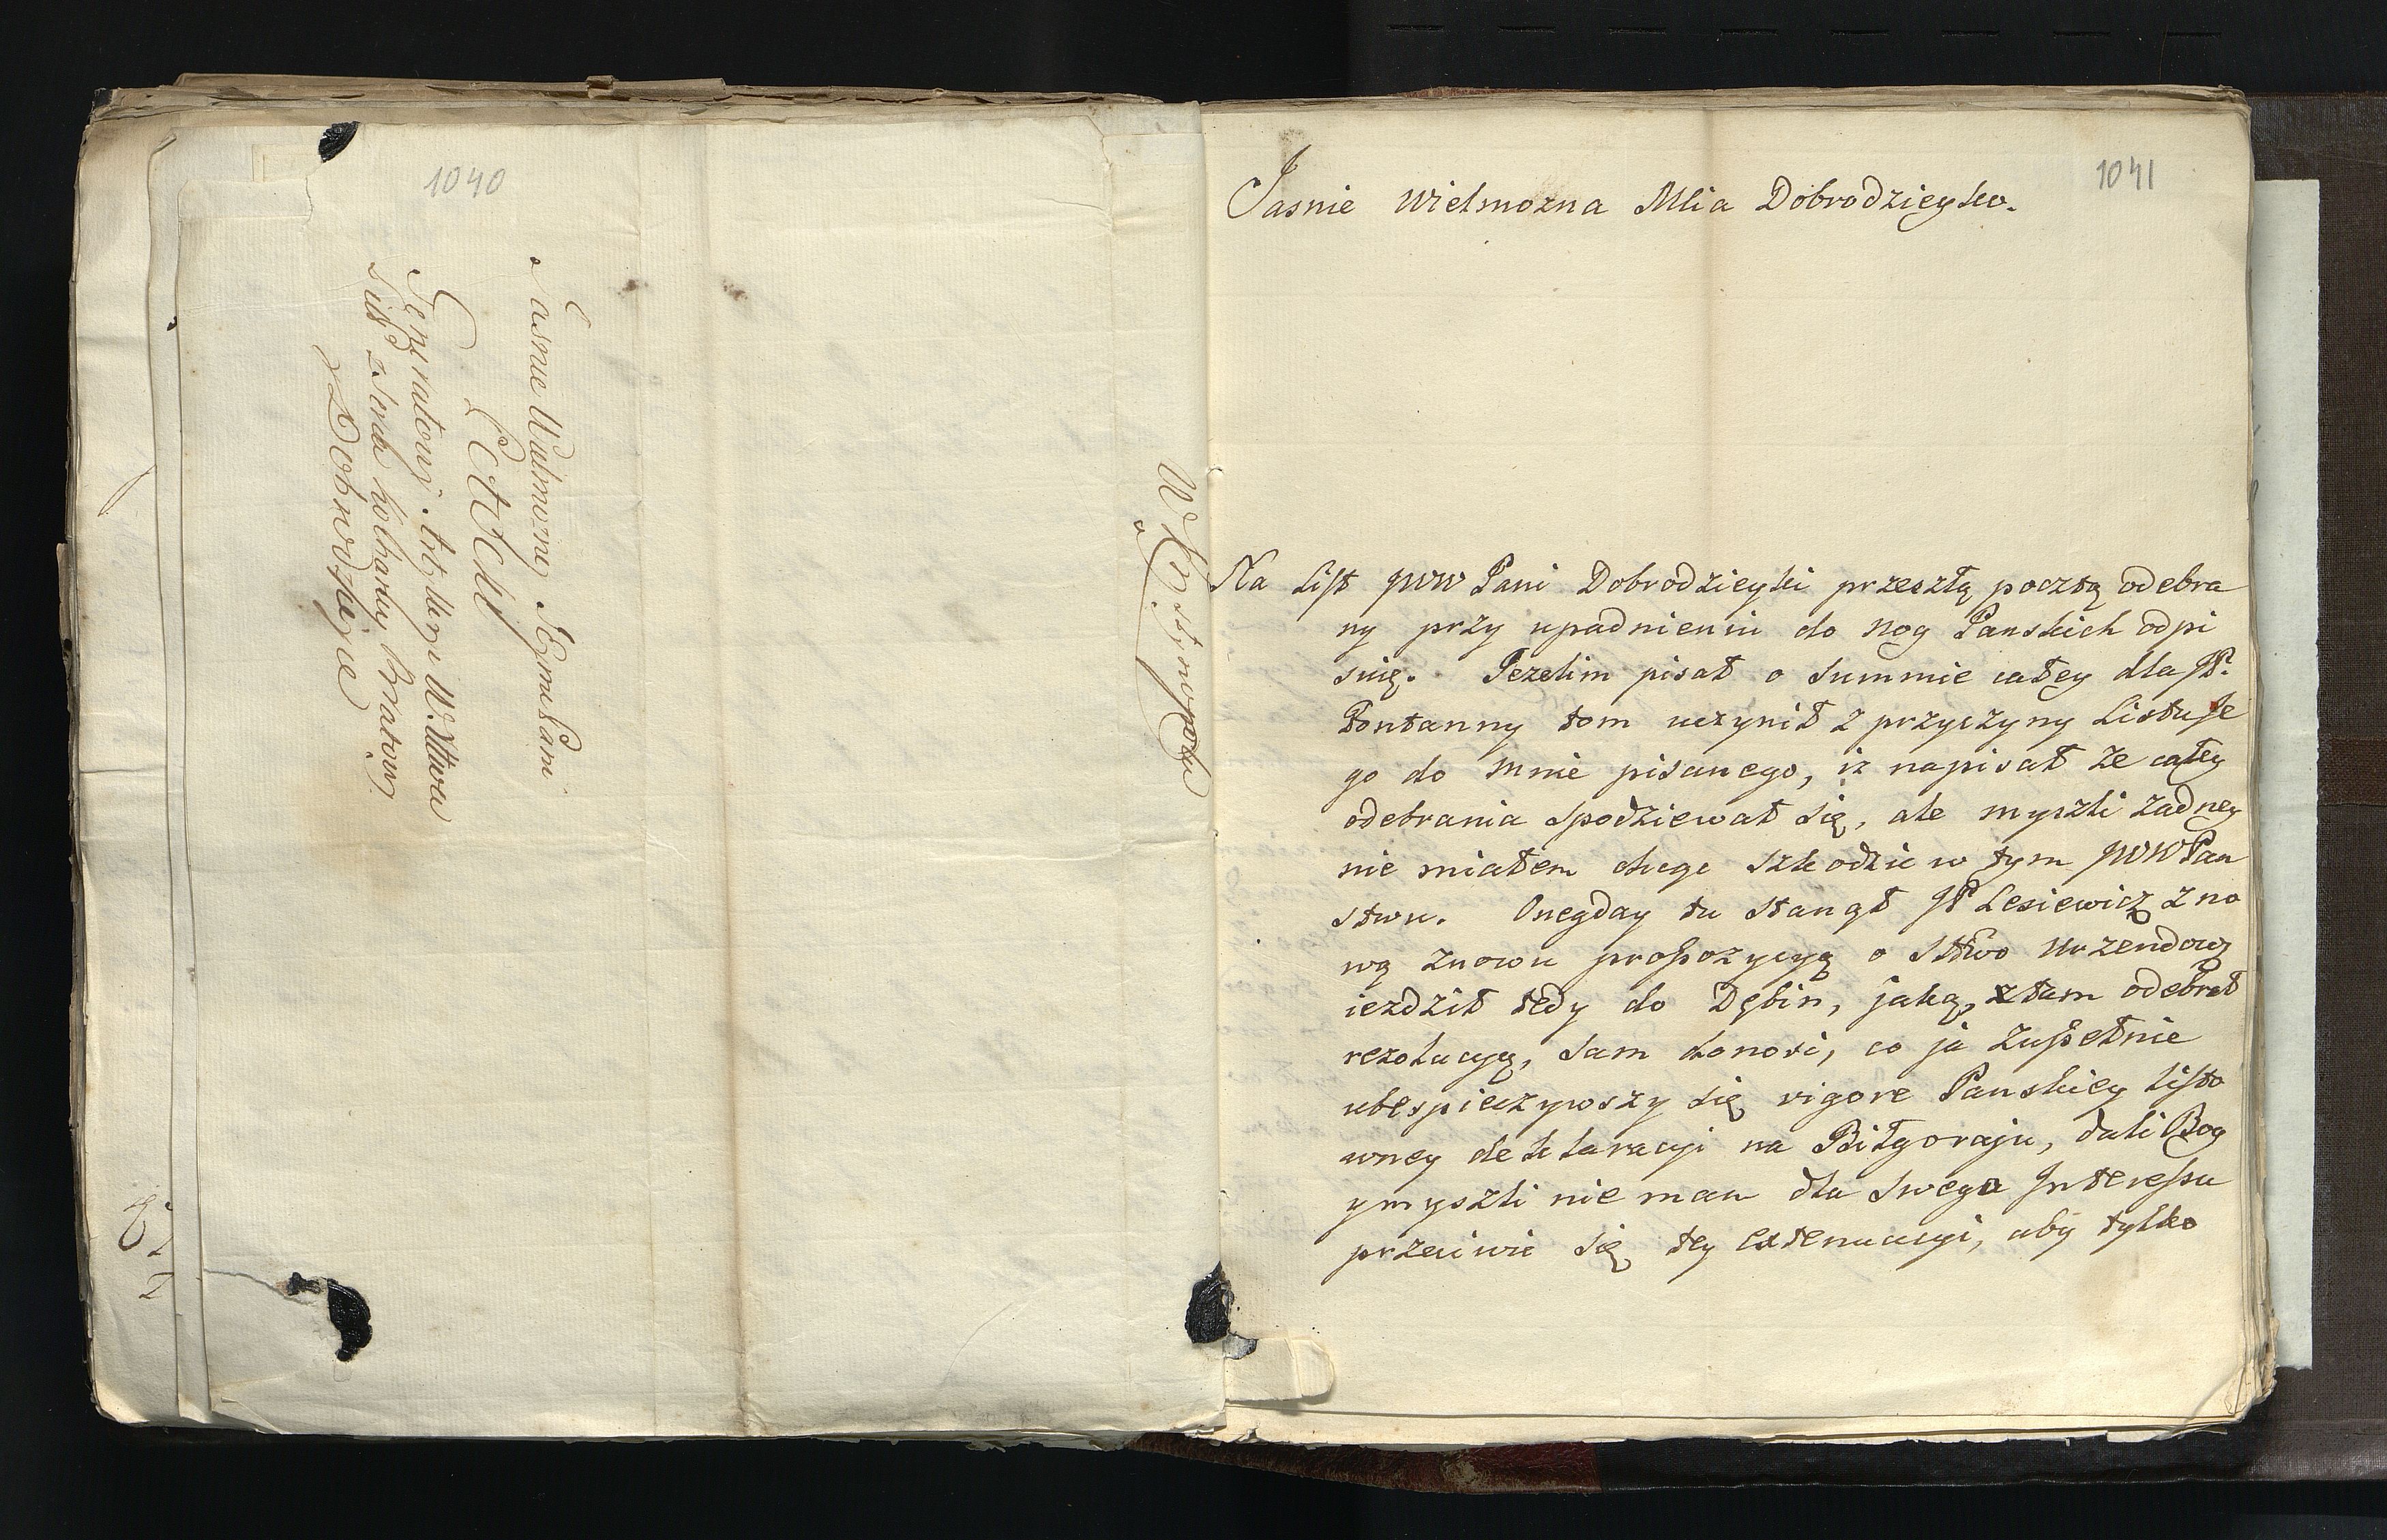 1040
Jasnie Wielmozny Jegomosci Panu
Bratowi
Dobrodzieie
1041
Jasnie Wielmozna Mścia Dobrodzieyko.
Na list JWW Pani Dobrodzieyki przeszłą pocztą odebra
ny przy upadnieniu do nog Panskich odpi
suię. Jezelim pisał o summie całey dla JP.
Fontanny tom uczynił z przyczyny Listu Je
go do mnie pisanego, iz napisał ze całey
odebrania spodziewał się, ale myszli zadney
nie miałem chcąc szkodzic w tym JWW Pan
stwu. Onegday tu stanął JP Lesiewicz z no
wą znowu propozycyą o Sttwo Urzendowz
iezdził tedy do Dębin, jaką ztam odebrał
rezolucyą, sam donosi, co ja zupełnie
ubespieczywszy się vigore Panskiey listo
wney deklaracyi na Biłgoraju, dali Bog
y myszli nie mam dla swego Interessu
przeciwic się tey extenuacyi, aby tylko